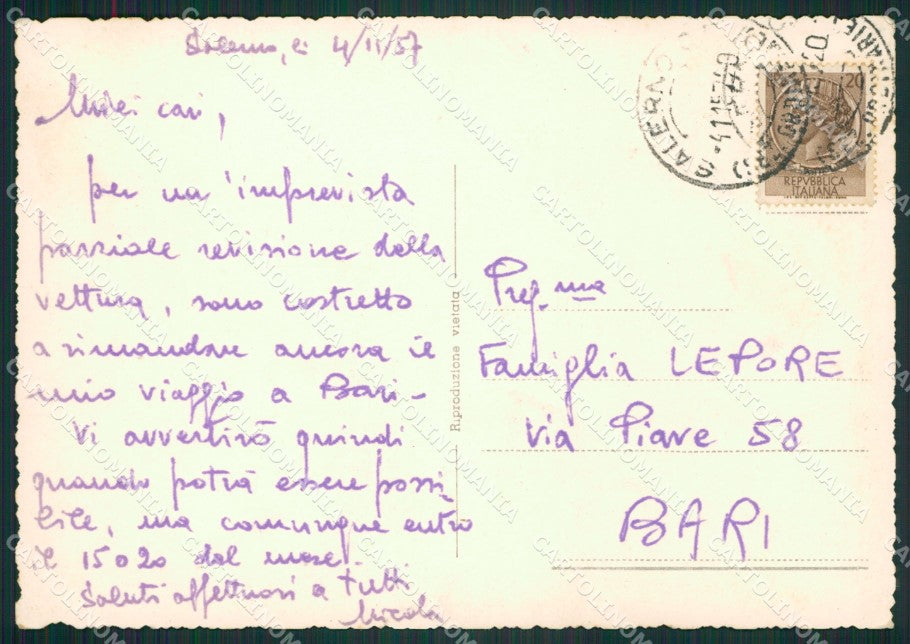 Salerno, li 4/11/57
Miei cari,
per un'imprevista
parziale revisione della
vettura, sono costretto
a rimandare ancora il
mio viaggio a Bari -
Vi avvertirò quindi
quando potrà essere possi-
bile, ma comunque entro
il 15 o 20 del mese.
Saluti affettuosi a tutti
Nicola
Riproduzione vietata
SALERNO
20
REPVBBLICA
ITALIANA
Preg.ma
Famiglia LEPORE
Via Piave 58
BARI
CARTOLINOMANIA